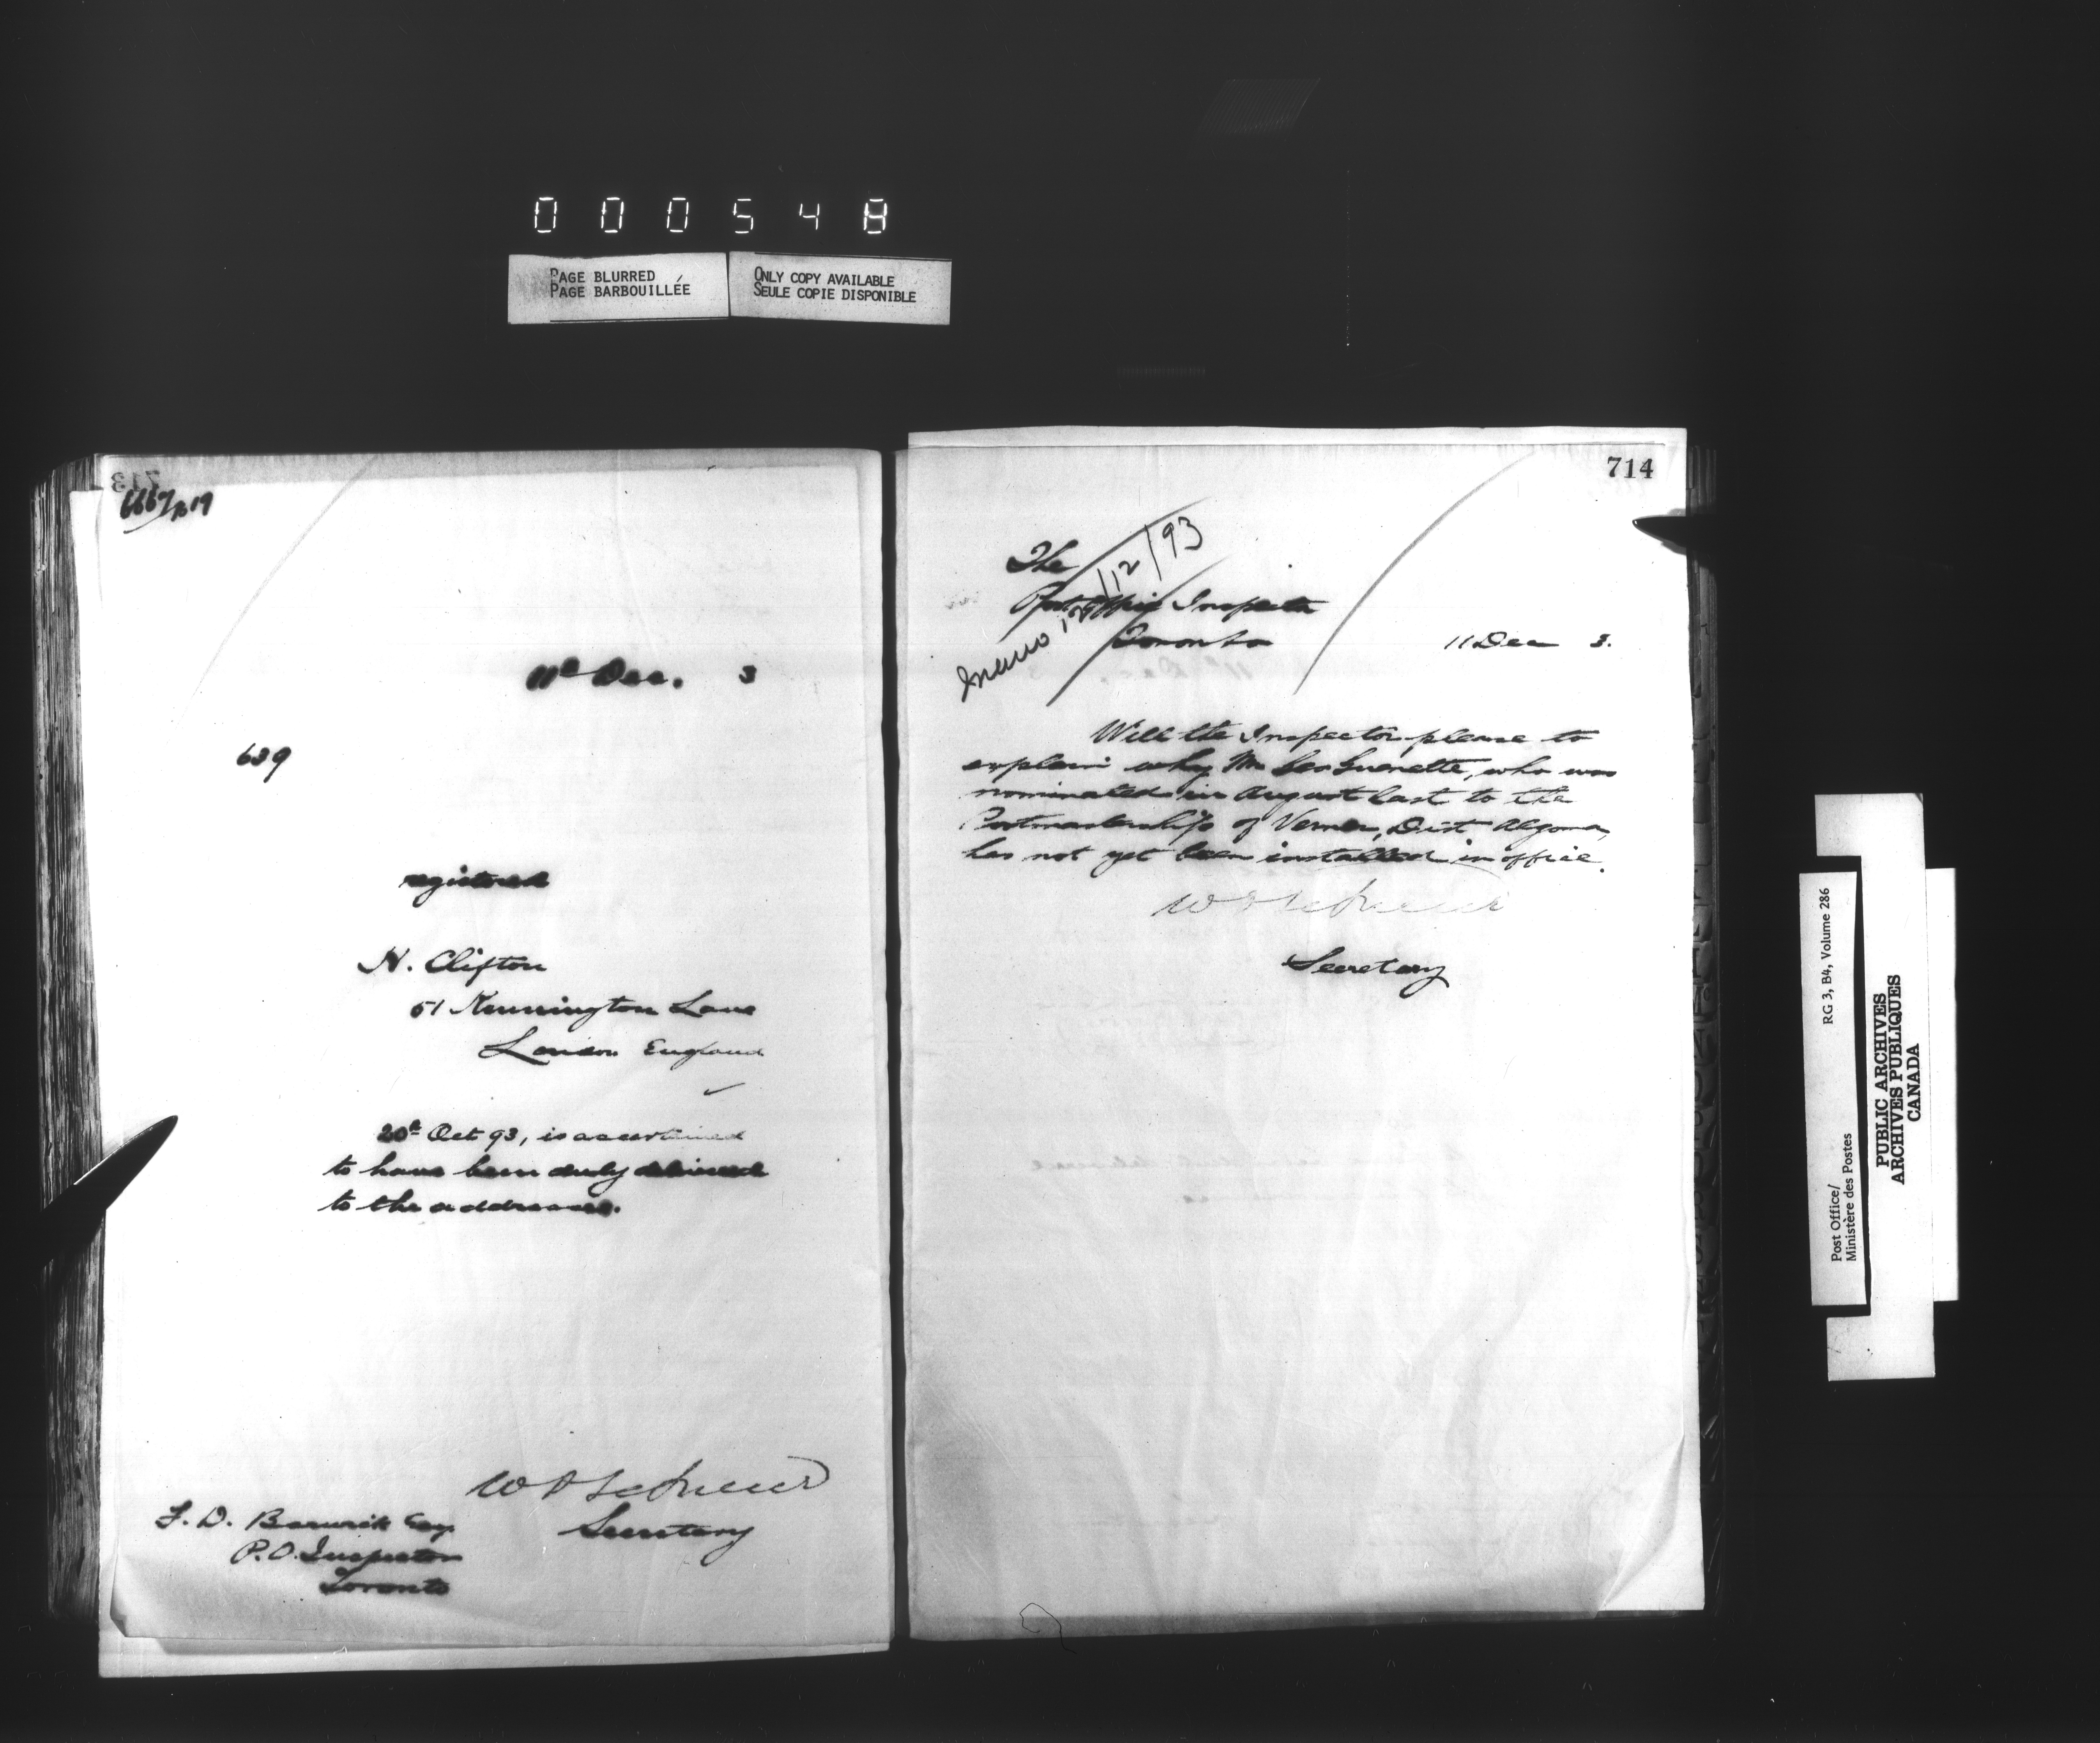 000548
PAGE BLURRED
PAGE BARBOUILLÉE
ONLY COPY AVAILABLE
SEULE COPIE DISPONIBLE
713
11th Dec. 3
639
registered
N. Clifton
51 Kennington Lane
London England
20th Oct 93, is ascertained
to have been duly delivered
to the addressee.
Secretary
F. D. Barwick Esq
P.O. Inspector
Toronto
714
The
Post Office Inspector
Toronto
11 Dec 3.
memo 12/93
Will the Inspector please to
explain why Mr Leo Guenette, who was
nominated in August last to the
Postmastership of Verner, Dist Algoma,
has not yet been installed in office.
Secretary
Post Office/
Ministère des Postes
RG 3, B4, Volume 286
PUBLIC ARCHIVES
ARCHIVES PUBLIQUES
CANADA